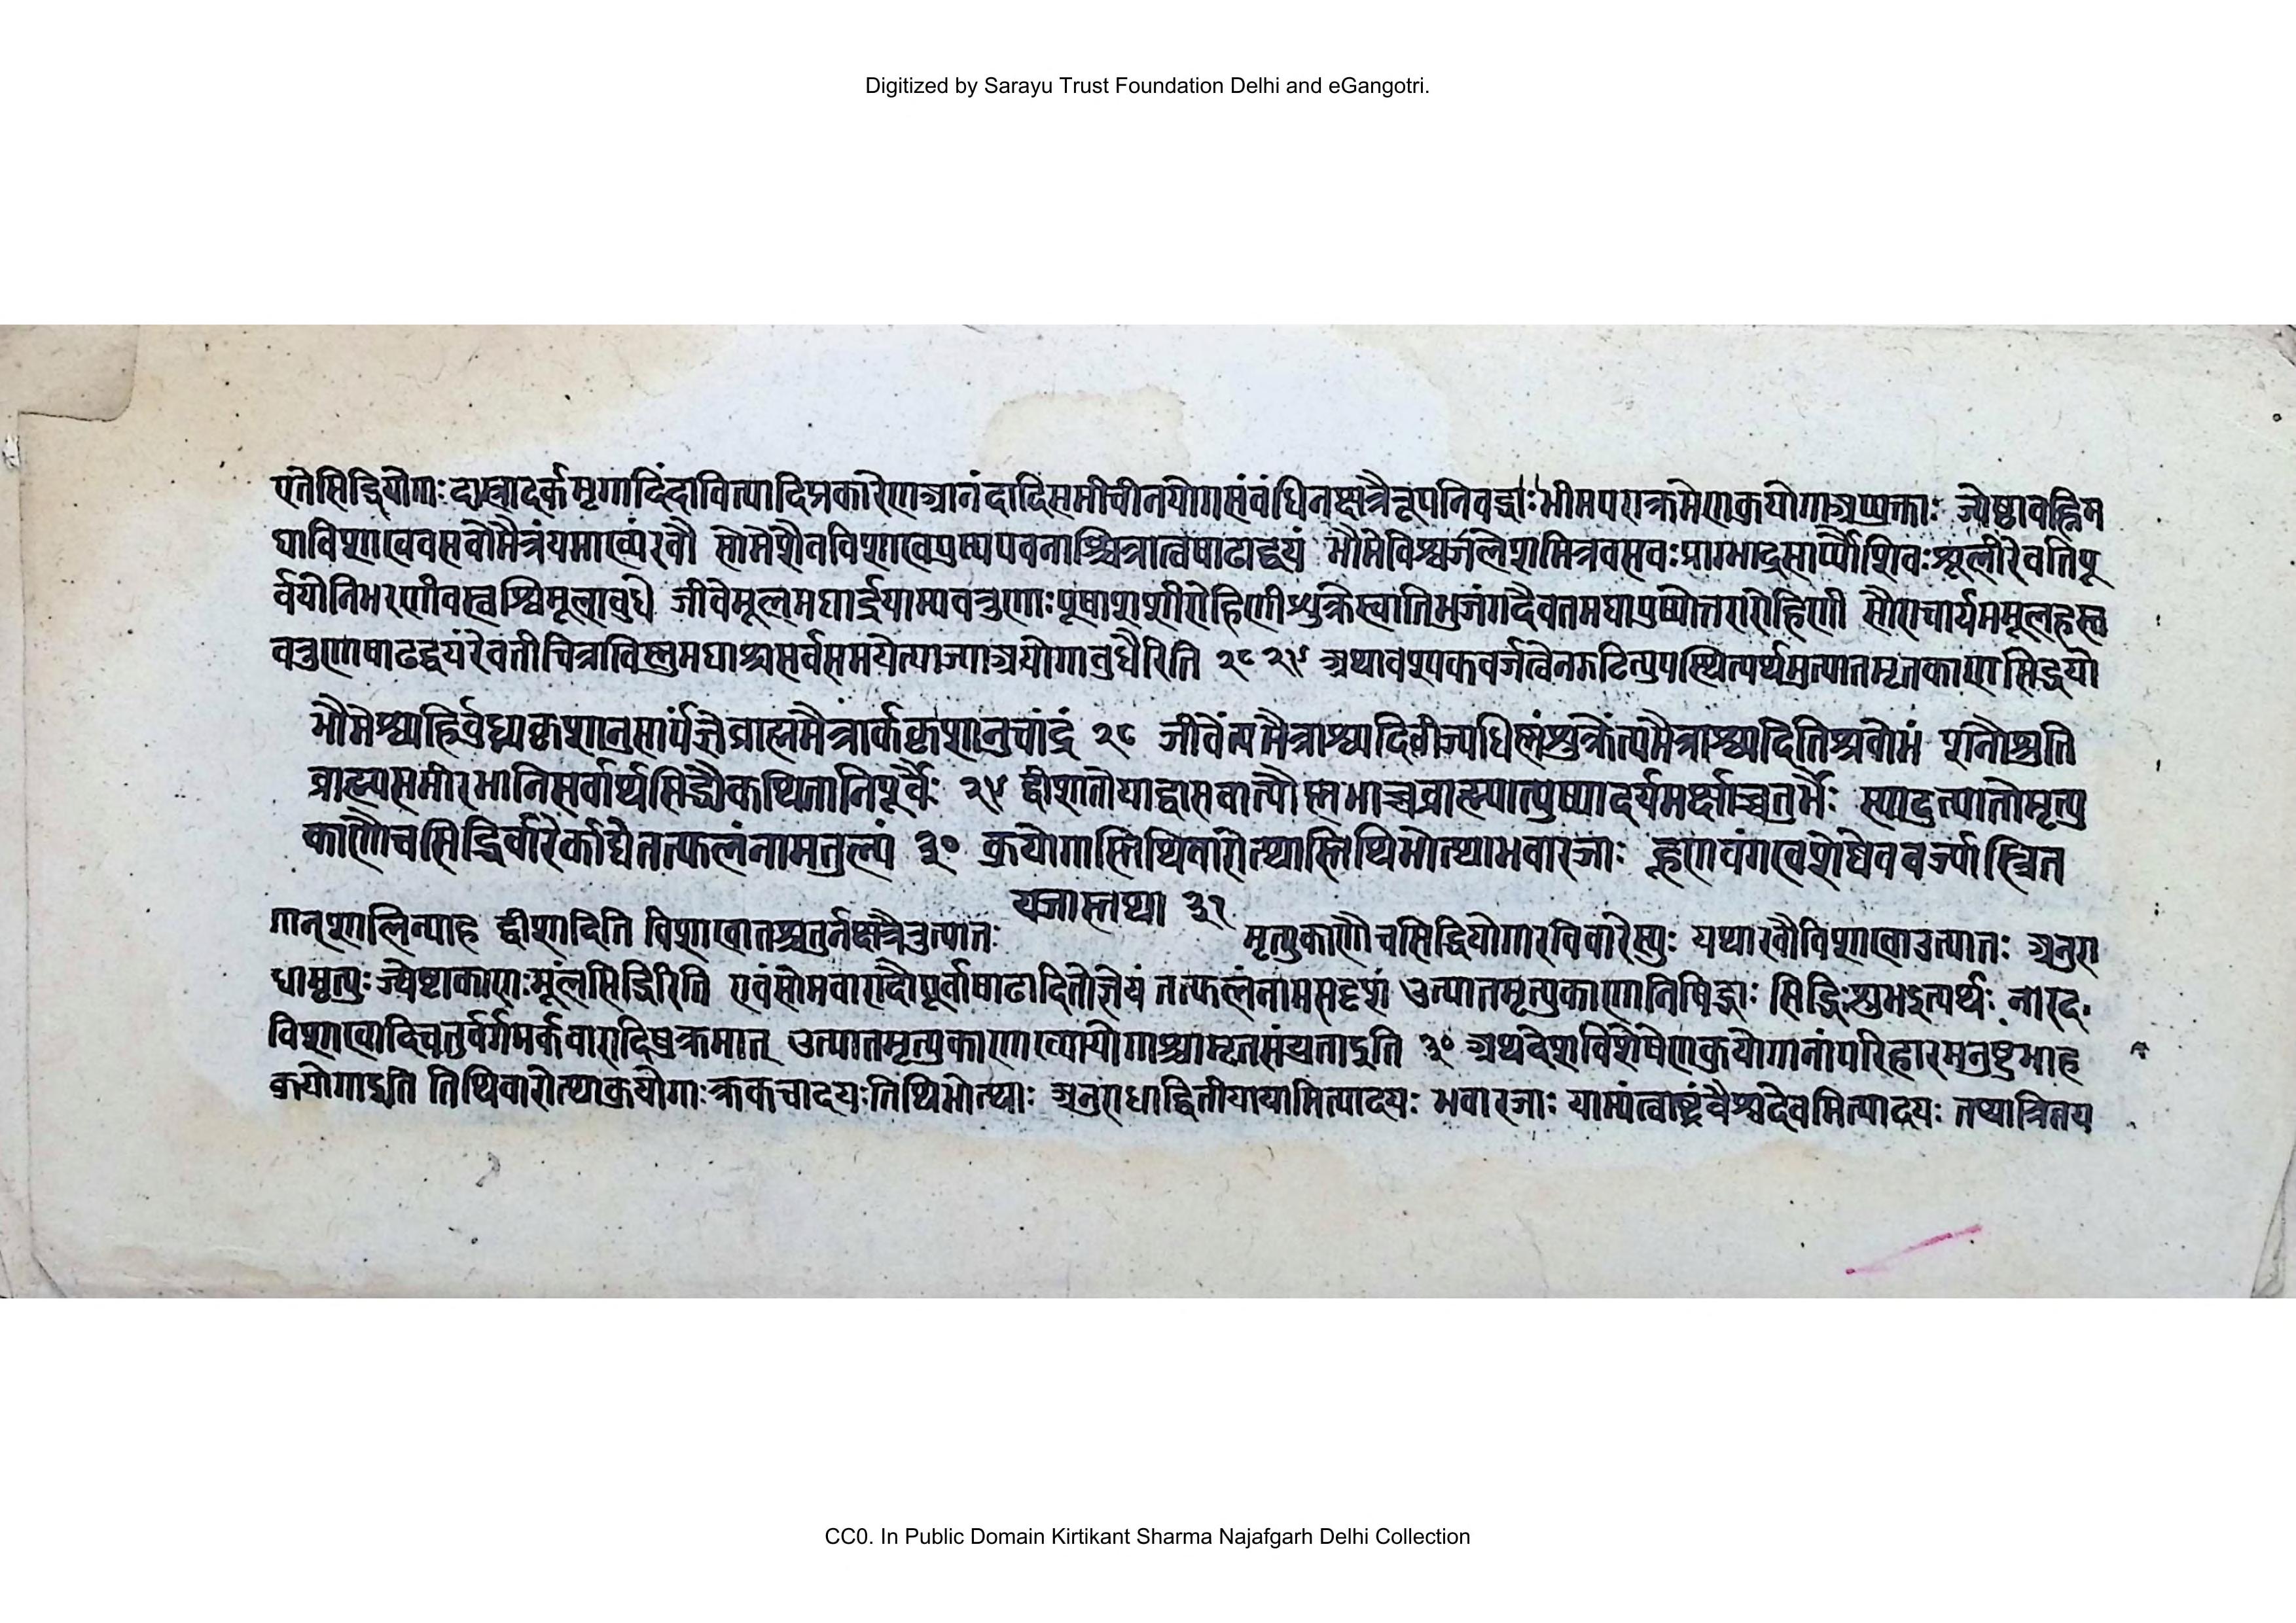 Digitized by Sarayu Trust Foundation Delhi and eGangotri.
एतेसिद्धियोगाः दास्रादर्कमृगादिंदावित्यादिप्रकारेणआनंदादिसमीचीनयोगसंवंधिनक्षत्रैनूपनिवद्धाः भीमपराक्रमेणकुयोगाअप्युक्ताः ज्येष्ठावह्निम
घाविशाखेवसवोमैत्रंयमाख्यंरवौ सोमेशैनविशाखेपुष्यपवनाश्चित्रात्वषाढाद्वयं भौमेविश्वजलेशमित्रवसवःप्राग्भाद्रसार्प्पौशिवःशूलीरेवतिपू
र्वयोनिभरणीवस्वश्विमूलावुधे जीवेमूलमघार्द्रयाम्यवरुणाःपूषाशशीरोहिणीशुक्रेस्वातिभुजंगदैवतमघापुष्योत्तरारोहिणी सौराचार्यममूलहस्त
वरुणाषाढद्वयंरेवतीचित्राविस्नुमघाश्च सर्वसमयेत्याज्याअयोगावुधैरिति २८ २९ अथावश्यकवर्जत्वेनझटित्युपस्थित्यर्थमुत्पातमृतकाणसिद्धियो
भौमेश्व्यहिर्वुघ्न्यकृशानुसार्पंज्ञेव्राह्ममैत्रार्ककृशानुचांद्रं २८ जीवेंत्यमैत्राश्व्यदितीज्यधिस्नंशुक्रेंत्यमैत्राश्व्यदितिश्रवोभं शनौश्रुति
व्राह्म्यसमीरभानिसर्वार्थसिद्ध्यैकथितानिपूर्वैः २९ द्वीशात्तोयाद्वासवात्पौस्नभाच्चव्राह्म्यात्पुष्यादर्यमर्क्षाच्चतुर्भैः स्यादुत्पातोमृत्यु
काणौचसिद्धिर्वारेर्काद्येतत्फलंनामतुल्यं ३० कुयोगास्तिथिवारोत्थास्तिथिभोत्थाभवारजाः हूणवंगखशेष्वेववर्ज्यास्त्रित
यजास्तथा ३१
गान्शालिन्याह द्वीशादिति विशाखातश्चतुर्नक्षत्रैरुत्पातः मृत्युकाणौचसिद्धियोगारविवारेस्युः यथारवौविशाखाउत्पातः अनुरा
धामृत्युः ज्येष्टाकाणःमूलंसिद्धिरिति एवंसोमवारादौपूर्वाषाढादितोज्ञेयं तत्फलंनामसदृशं उत्पातमृत्युकाणानिषिद्धाः सिद्धिःशुभइत्यर्थः नारदः
विशाखादिचतुर्वर्गमर्कवारादिषुक्रमात् उत्पातमृत्युकाणाख्यायोगाश्चामृतसंज्ञताइति ३० अथदेशविशेषेणकुयोगानांपरिहारमनुष्टुभाह
कुयोगाइति तिथिवारोत्थाकुयोगाःक्रकचादयःतिथिभोत्थाः अनुराधाद्वितीयायामित्यादयः भवारजाः याम्यंत्वाष्ट्रंवैश्वदेवमित्यादयः तथात्रितय
CC0. In Public Domain Kirtikant Sharma Najafgarh Delhi Collection